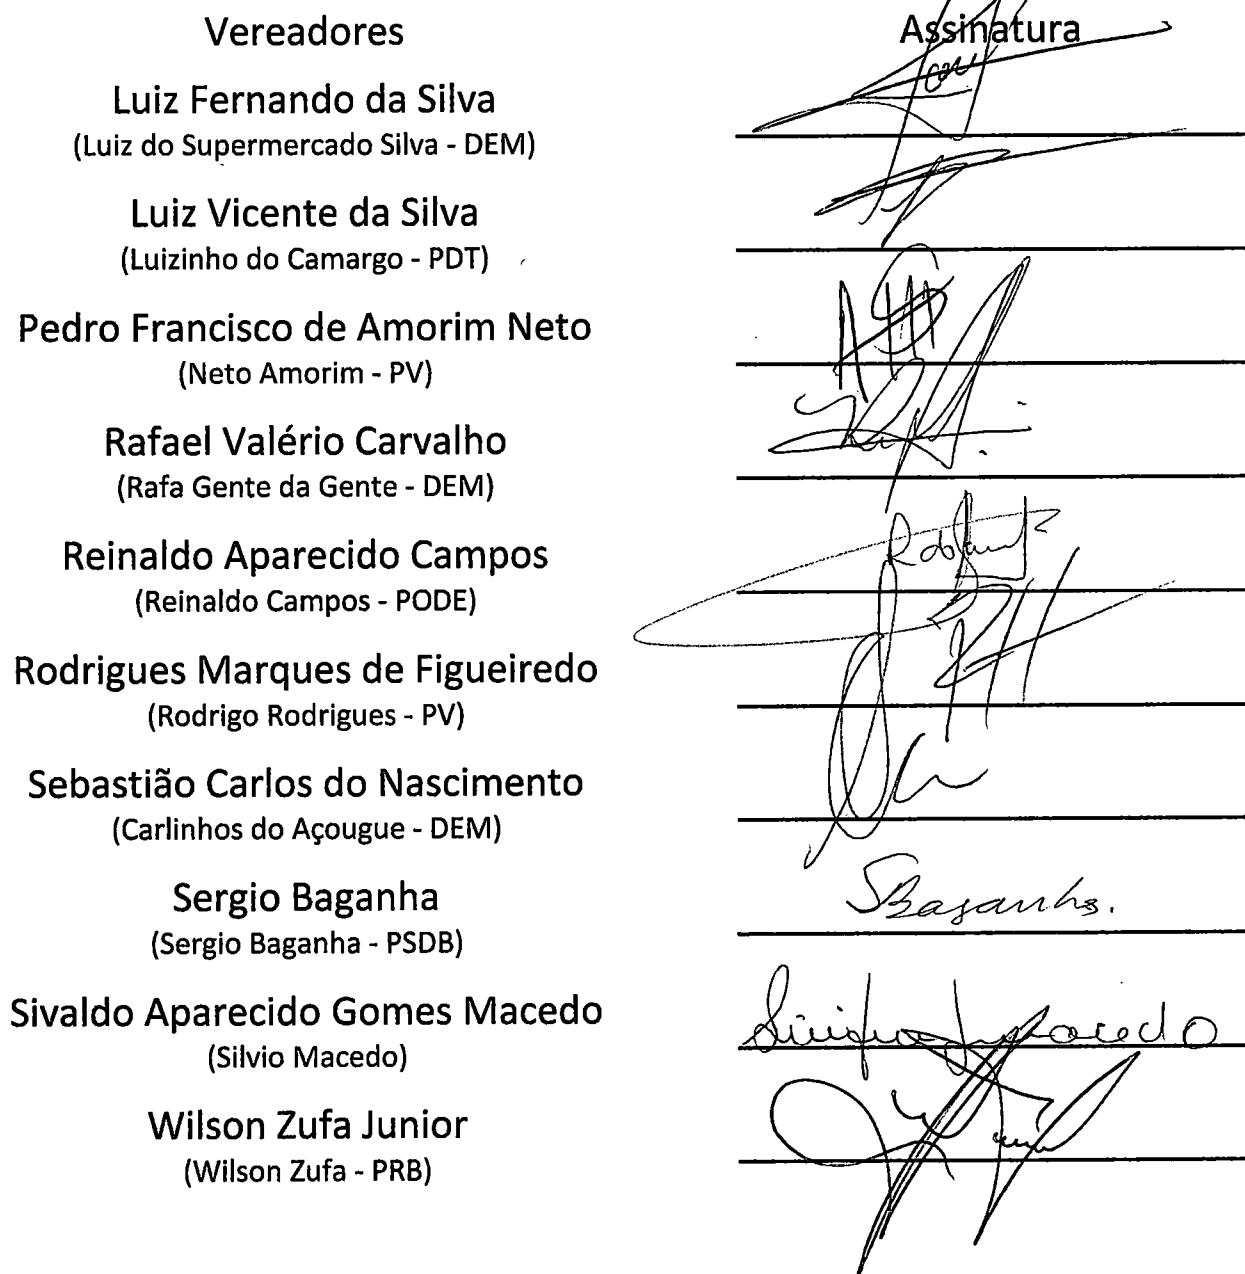 Vereadores Assinatura
Luiz Fernando da Silva
(Luiz do Supermercado Silva - DEM)
Luiz Vicente da Silva
(Luizinho do Camargo - PDT)
Pedro Francisco de Amorim Neto
(Neto Amorim - PV)
Rafael Valério Carvalho
(Rafa Gente da Gente - DEM)
Reinaldo Aparecido Campos
(Reinaldo Campos - PODE)
Rodrigues Marques de Figueiredo
(Rodrigo Rodrigues - PV)
Sebastião Carlos do Nascimento
(Carlinhos do Açougue - DEM)
Sergio Baganha
SBaganha.
(Sergio Baganha - PSDB)
Sivaldo Aparecido Gomes Macedo
(Silvio Macedo)
Wilson Zufa Junior
(Wilson Zufa - PRB)